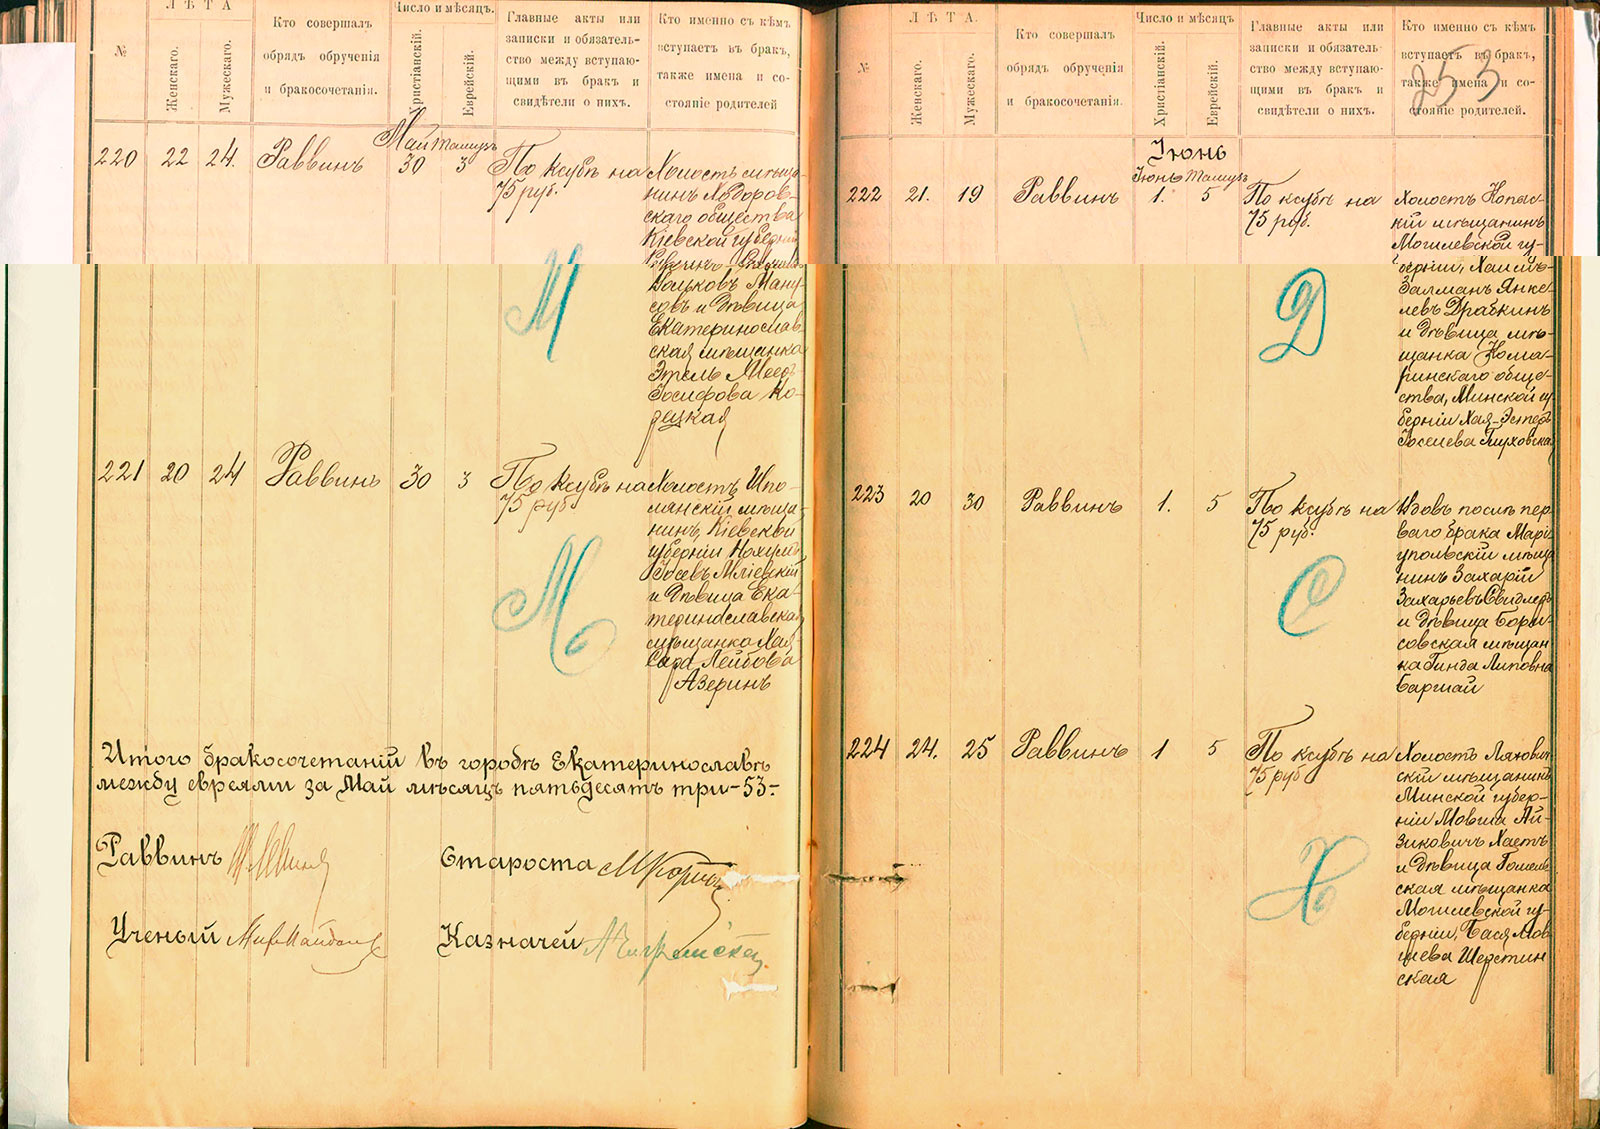 ЛѢТА
№
Женскаго.
Мужескаго.
Кто совершалъ
обрядъ обрученія
и бракосочетанія.
Число и мѣсяцъ.
Христіанскій.
Еврейскій.
Главные акты или
записки и обязатель-
ство между вступаю-
щими въ бракъ и
свидѣтели о нихъ.
Кто именно съ кѣмъ
вступаетъ въ бракъ,
также имена и со-
стояніе родителей
Май Тамузъ
220 22 24. Раввинъ 30 3
По ксубѣ на
75 руб.
Холостъ мѣща-
нинъ
скаго общества
Кіевской губерніи
Вольковъ Ману-
совъ и дѣвица
Екатеринослав-
ская мѣщанка
Этель Меер-
Іосифова Ко-
децкая
М
221 20 24 Раввинъ 30 3
По ксубѣ на
75 руб.
Холостъ Шпо-
лянскій мѣща-
нинъ, Кіевской
губерніи Нохумъ
Іосевъ Мліевскій
и дѣвица Ека-
теринославская
мѣщанка Хая-
Сара Лейбова
Азеринъ
М
Итого бракосочетаній въ городѣ Екатеринославѣ
между евреями за Май мѣсяцъ пятьдесятъ три-53-
Раввинъ
Староста
Ученый
Казначей
ЛѢТА.
№
Женскаго.
Мужескаго.
Кто совершалъ
обрядъ обрученія
и бракосочетанія.
Число и мѣсяцъ
Христіанскій.
Еврейскій.
Главные акты или
записки и обязатель-
ство между вступаю-
щими въ бракъ и
свидѣтели о нихъ.
Кто именно съ кѣмъ
вступаетъ въ бракъ,
также имена и со-
стояніе родителей.
253
Іюнь
Іюнь Тамузъ
222 21. 19 Раввинъ 1. 5
По ксубѣ на
75 руб.
Холостъ Копыс-
кій мѣщанинъ
Могилевской гу-
берніи, Хаимъ-
Залманъ Янке-
левъ Драбкинъ
и дѣвица мѣ-
щанка Кома-
ринскаго обще-
ства, Минской гу-
берніи Хая-Эстеръ
Іоселева Глуховская
Д
223 20 30 Раввинъ 1. 5
По ксубѣ на
75 руб.
Вдовъ послѣ пер-
ваго брака Марі-
упольскій мѣща
нинъ Захарій
Захарьевъ Свидлеръ
и дѣвица Бори-
совская мѣщан
ка Гинда Липовна
Баршай
С
224 24. 25 Раввинъ 1 5
По ксубѣ на
75 руб
Холостъ Ляхович-
скій мѣщанинъ
Минской губер-
ніи Мовша Ай-
зиковичъ Хаетъ
и дѣвица Гомель-
ская мѣщанка
Могилевской гу-
берніи, Бася Мов-
шева Шерстин
ская
Х